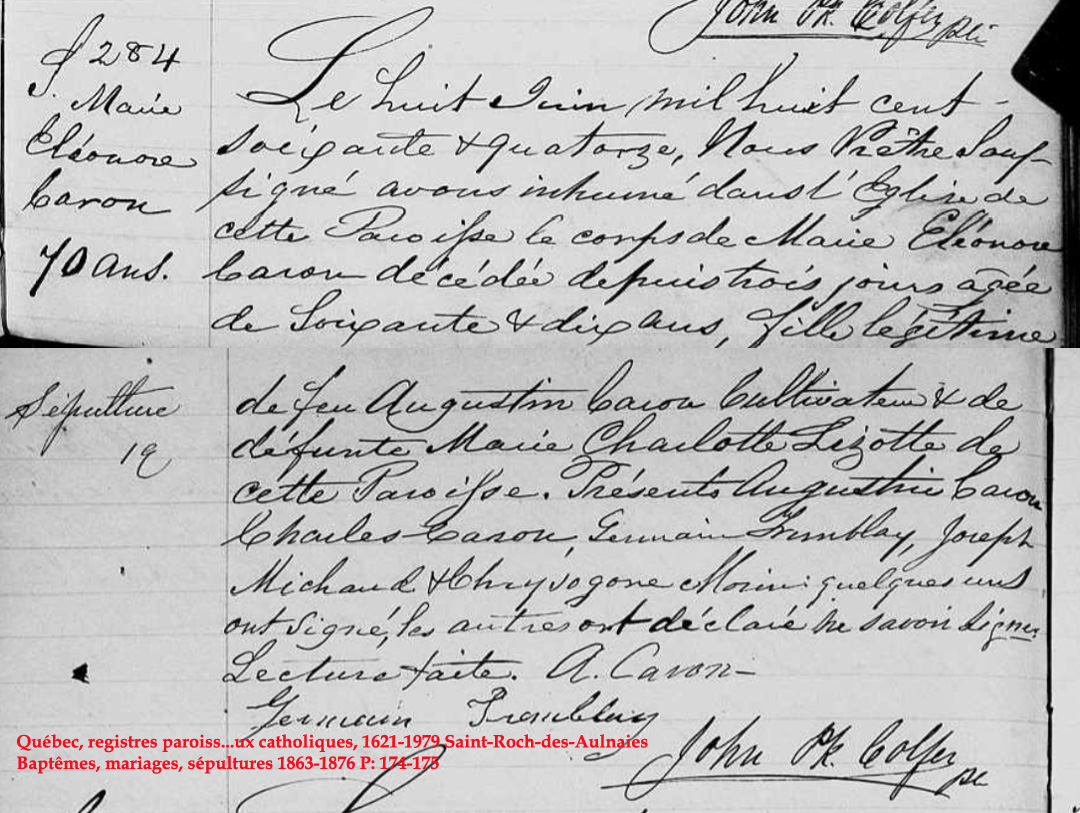 John Ph. Colfer ptr
S. 284
Marie
Eléonore
Caron
70 ans.
Le huit Juin mil huit cent
soixante & quatorze, Nous Prêtre Sous-
signé avons inhumé dans l'Eglise de
cette Paroisse le corps de Marie Eléonore
Caron décédée depuis trois jours agée
de Soixante & dix ans, fille légitime
Sépulture
19
de feu Augustin Caron Cultivateur & de
défunte Marie Charlotte Lizotte de
cette Paroisse. Présents Augustin Caron
Charles Caron, Germain Tremblay, Joseph
Michaud & Chrysogone Morin: quelques uns
ont signé, les autres ont déclaré ne savoir signer
Lecture faite. A. Caron-
Germain Tremblay
John Ph. Colfer ptr
Québec, registres paroiss...ux catholiques, 1621-1979 Saint-Roch-des-Aulnaies
Baptêmes, mariages, sépultures 1863-1876 P: 174-175